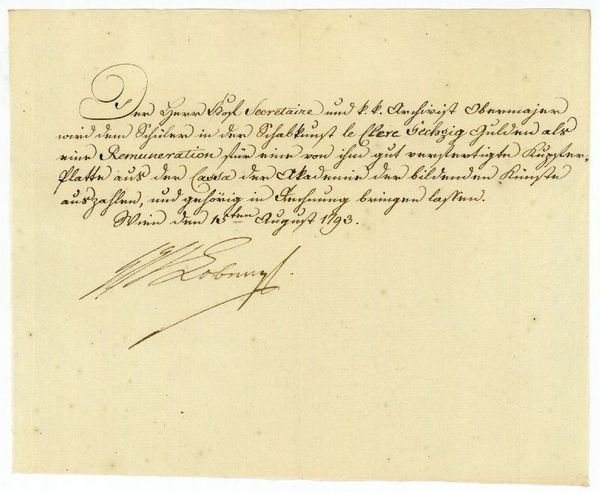 Der Herr Hof Secretaire und k. k. Archivist Obermajer
wird dem Schüler in der Schabkunst le sechzig Gulden als
eine Remuneration für eine von ihm gut verfertigte Kupfer-
Platte aus der Cassa der Akademie der bildenden Künste
auszahlen, und gehörig in Rechnung bringen lassen.
Wien den 15ten August 1793.